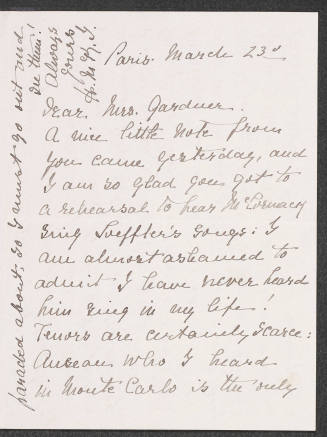 Paris. March 23d
Dear Mrs. Gardner.
A nice little note from
you came yesterday, and
I am so glad you got to
a rehearsal to hear McCormack
sing Loeffler's songs: I
am almost ashamed to
admit I have never heard
him sing in my life!
Tenors are certainly scarce:
who I heard
in Monte Carlo is the only
paraded about, so I must go out and
see them!
Always
yours